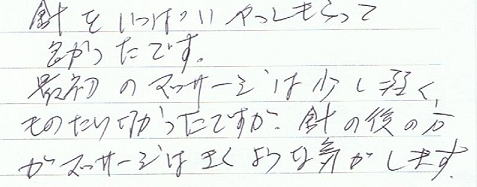 針をいっぱいやってもらって
良かったです。
最初のマッサージは少し軽く、
ものたりなかったですが、針の後の方
がマッサージはきくような気がします。